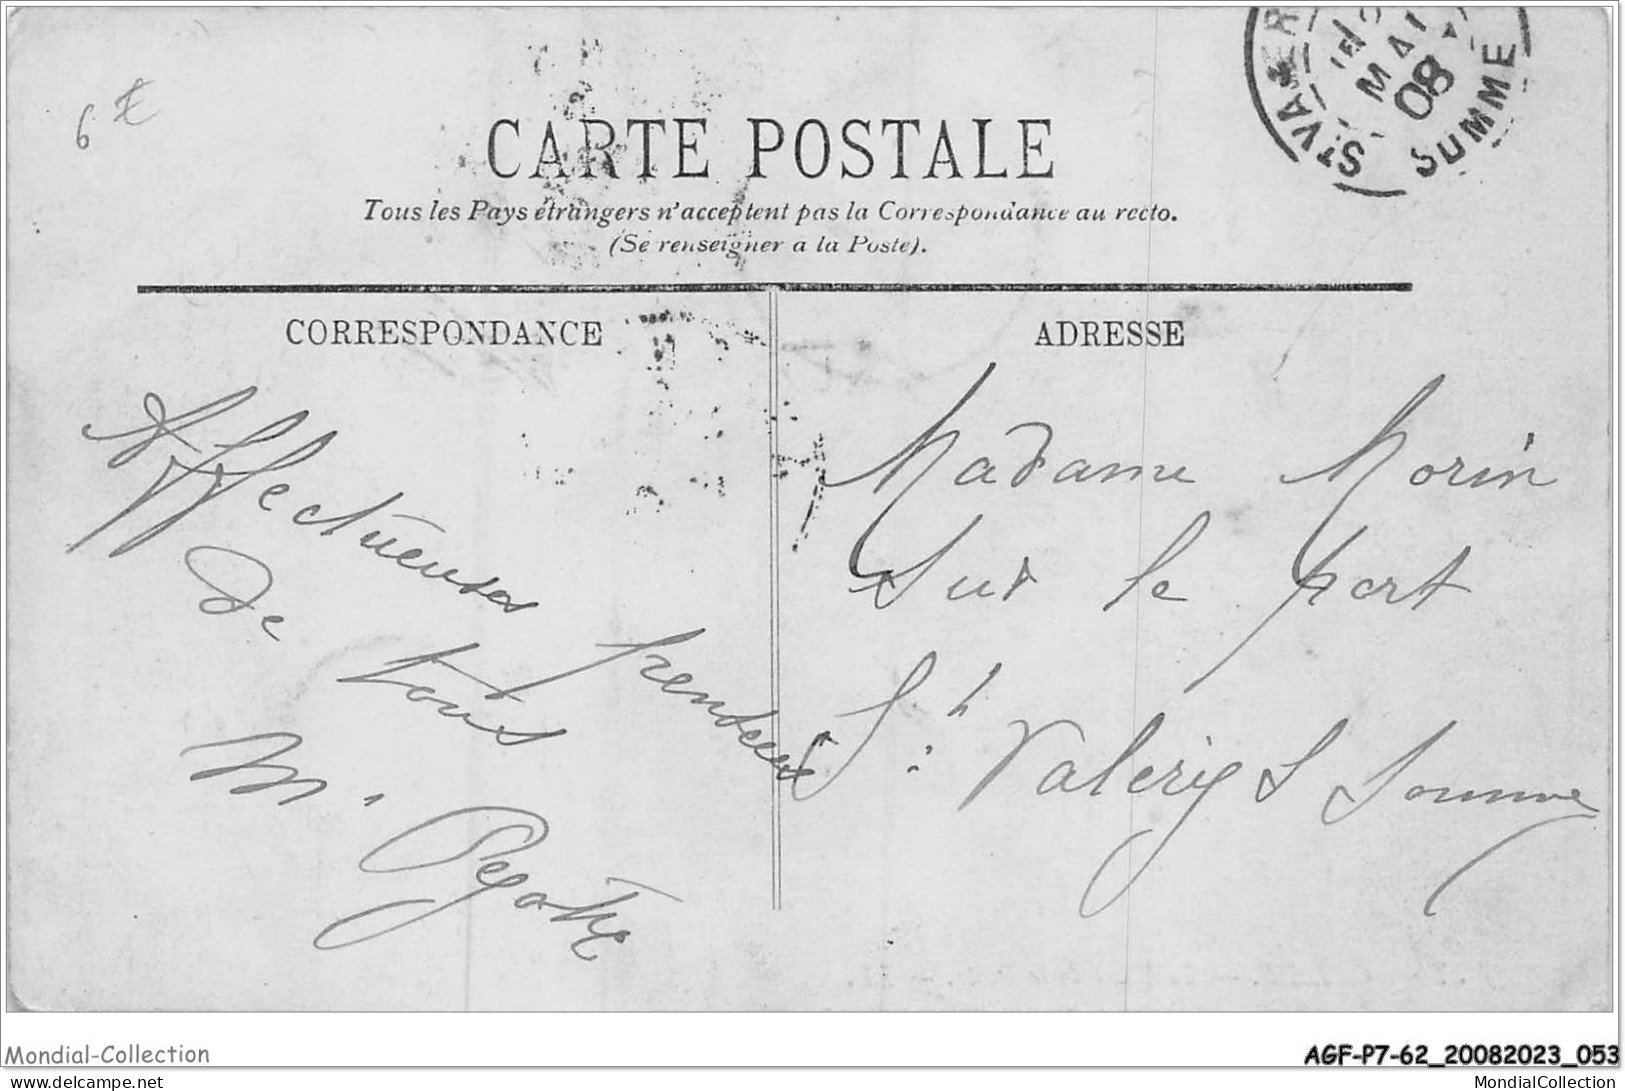 6 €
St VALERY
MAI
08
SOMME
CARTE POSTALE
Tous les Pays étrangers n'acceptent pas la Correspondance au recto.
(Se renseigner a la Poste).
CORRESPONDANCE
Affectueuses pensées
de tous
M.
ADRESSE
Madame Morin
Sur le port
St Valéry S Somme
Mondial-Collection
AGF-P7-62_20082023_053
www.delcampe.net
MondialCollection